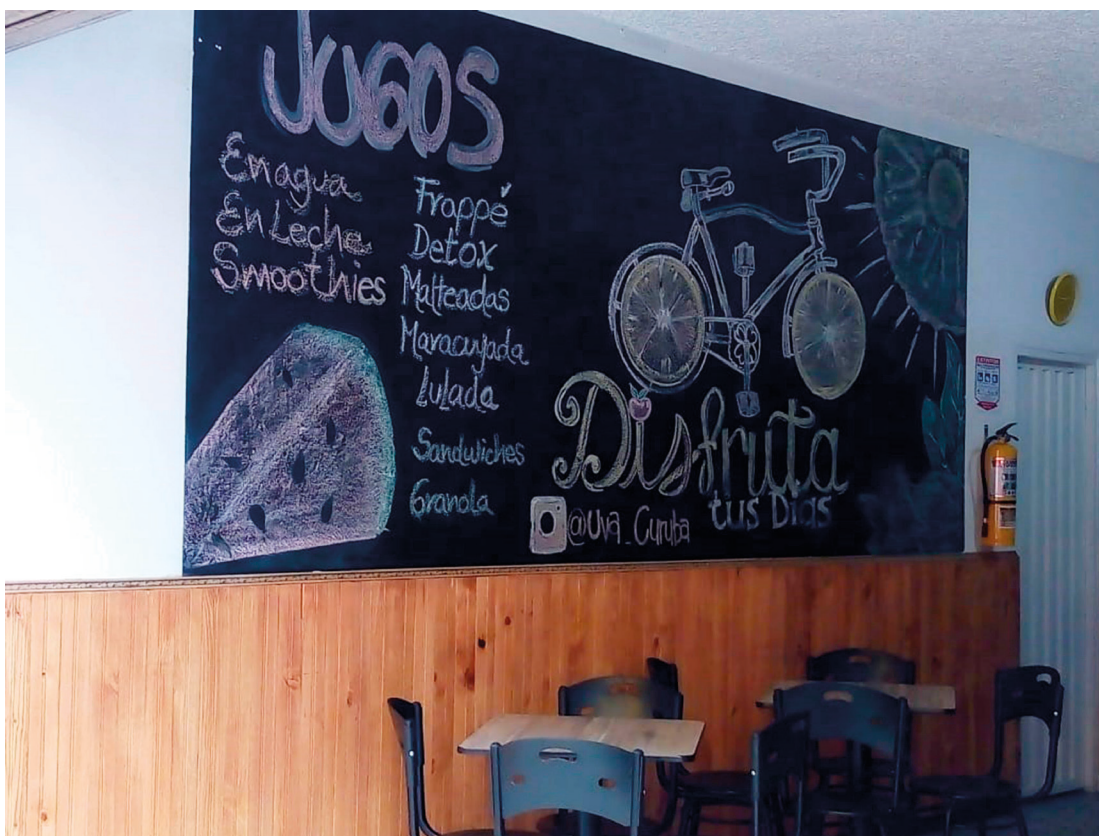 JUGOS
En agua
En Leche
Smoothies
Frappé
Detox
Malteadas
Maracuyada
Lulada
Sandwiches
Granola
Disfruta
tus Dias
@Uva_Curuba
EXTINTOR